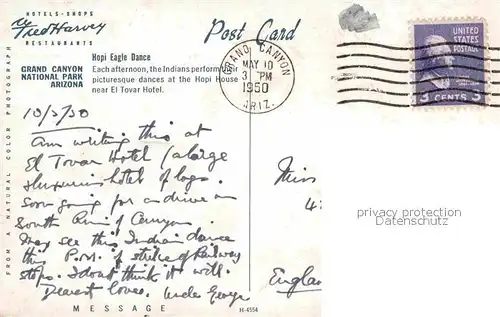 HOTELS · SHOPS
Fred Harvey
RESTAURANTS
Post Card
GRAND CANYON
NATIONAL PARK
ARIZONA
Hopi Eagle Dance
Each afternoon, the Indians perform their
picturesque dances at the Hopi House
near El Tovar Hotel.
GRAND CANYON
MAY 10
3 PM
1950
ARIZ.
UNITED
STATES
POSTAGE
3 CENTS 3
10/5/50
Am writing this at
El Tovar Hotel (a large
luxurious hotel of logs.
Soon going for a drive on
South Rim of Canyon.
May see this Indian dance
this P.M. if strike of Railway
stops. I don't think it will.
Dearest love. Uncle George
Miss
4
England
privacy protection
Datenschutz
FROM A NATURAL COLOR PHOTOGRAPH
MESSAGE
H-4554